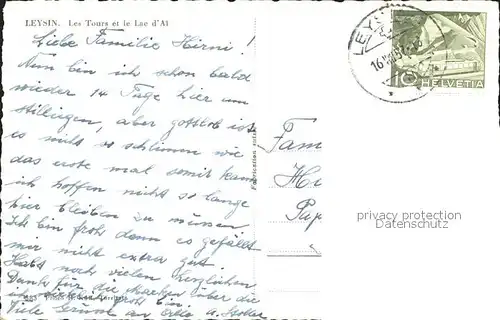 LEYSIN. Les Tours et le Lac d'Aï
Liebe Familie Hirni!
Nun bin ich schon bald
wieder 14 Tage hier um
aber gottlob ist
es nicht so schlimm wie
das erste mal somit kann
ich hoffen nicht so lange
hier bleiben zu müssen
Ich bin froh denn es gefällt
mir nicht extra gut.
Habt noch vielen herzlichen
Dank für die Marken über die
ich sehr froh bin
Viele Grüsse an alle u.
LEYSIN
16
10
HELVETIA
Fam
Hi
Pap
privacy protection
Datenschutz